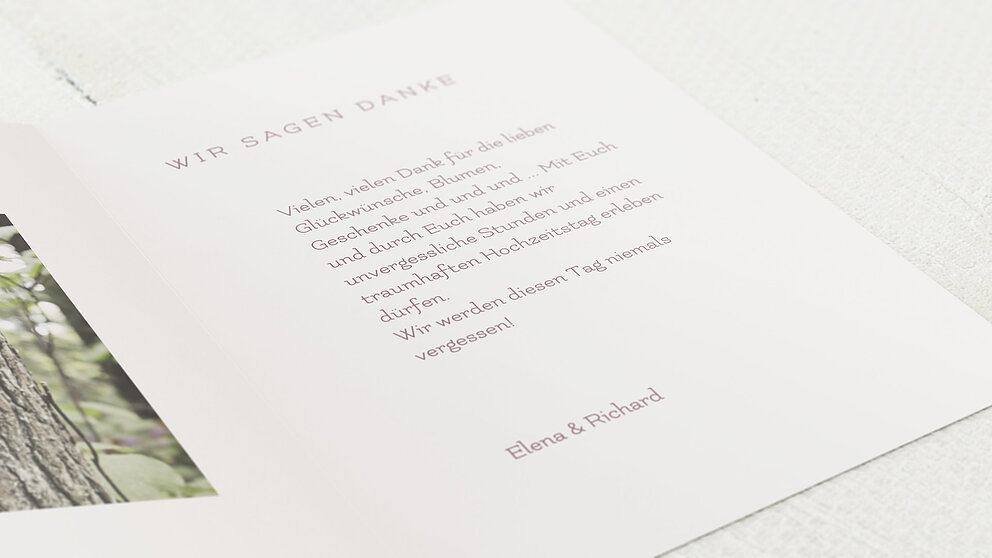 WIR SAGEN DANKE
Vielen, vielen Dank für die lieben
Glückwünsche, Blumen,
Geschenke und und und ... Mit Euch
und durch Euch haben wir
unvergessliche Stunden und einen
traumhaften Hochzeitstag erleben
dürfen.
Wir werden diesen Tag niemals
vergessen!
Elena & Richard